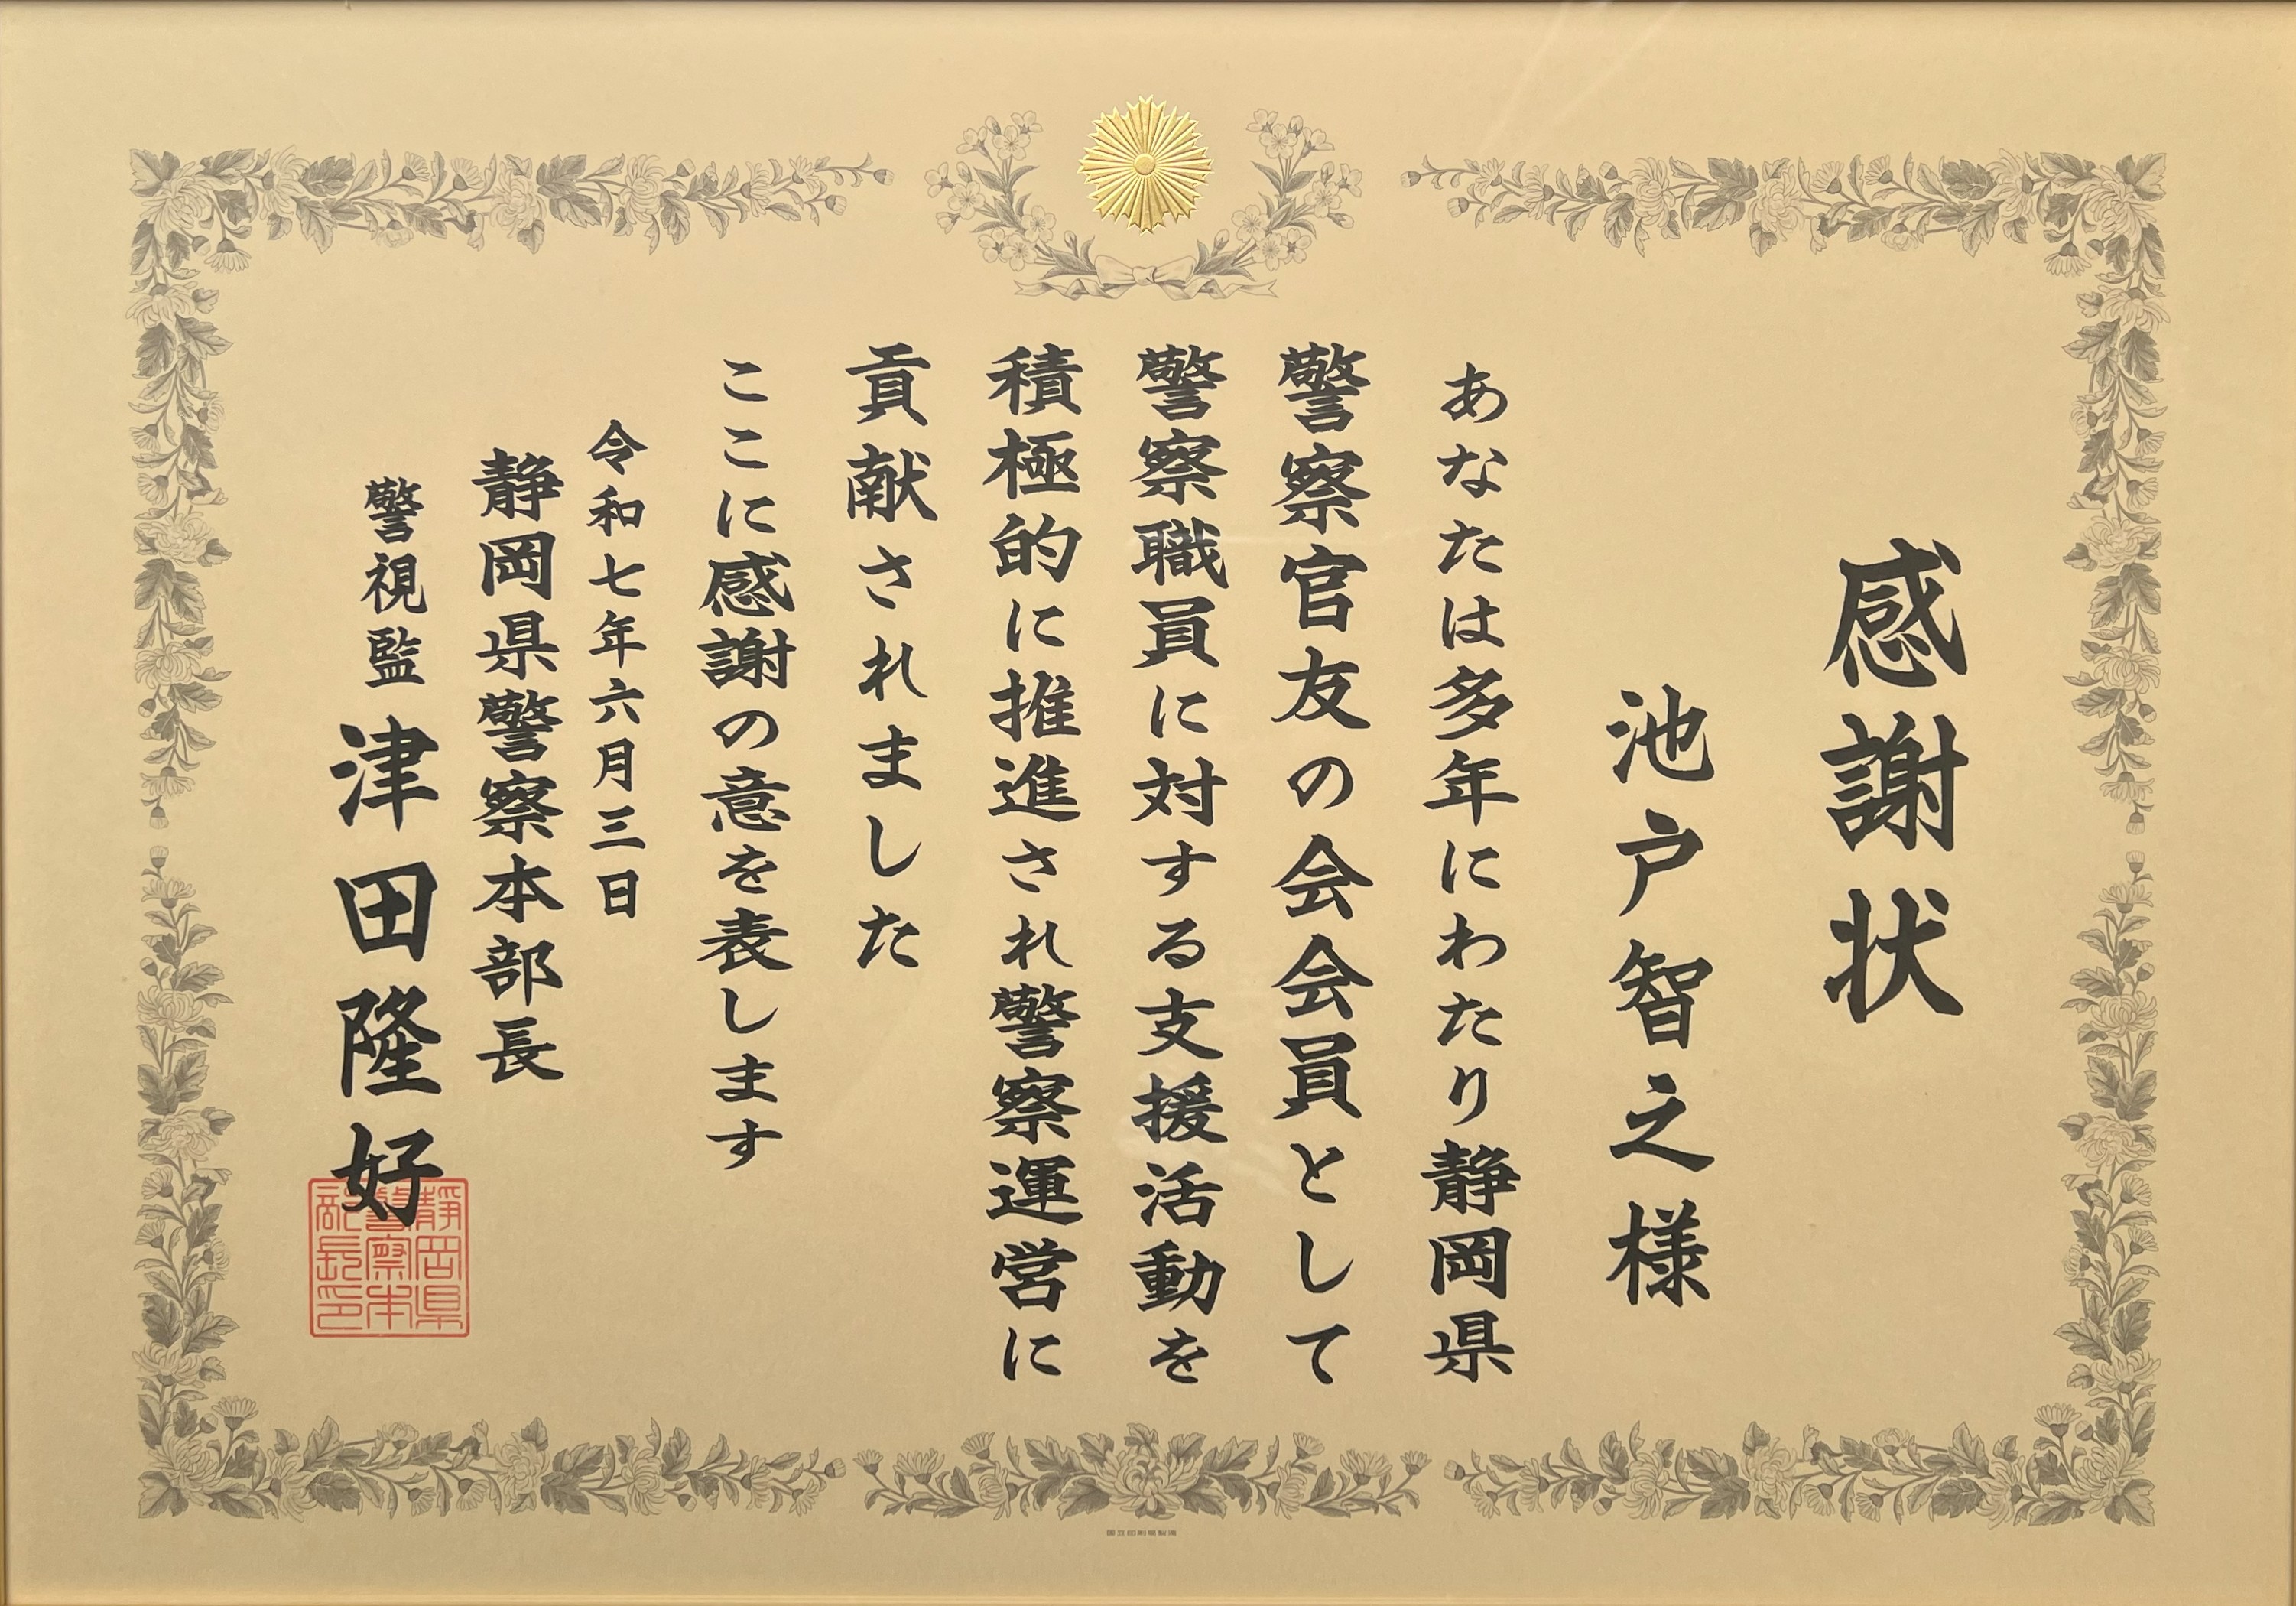 感謝状
池戸智之様
あなたは多年にわたり静岡県
警察官友の会会員として
警察職員に対する支援活動を
積極的に推進され警察運営に
貢献されました
ここに感謝の意を表します
令和七年六月三日
静岡県警察本部長
警視監 津田隆好
静岡県
警察本
部長印